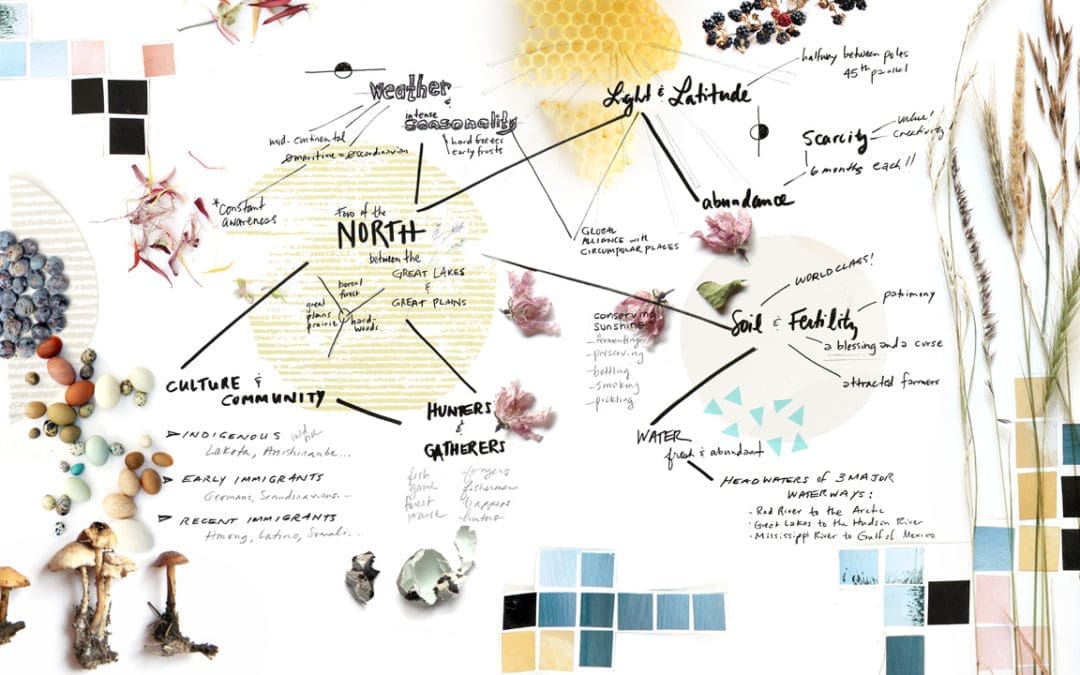 halfway between poles
45th parallel
Weather
&
intense
seasonality
hard freezes
early frosts
mid-continental
Light & Latitude
Scarcity
value!
creativity
6 months each!!
abundance
*Constant
awareness
GLOBAL
ALLIANCE with
CIRCUMPOLAR PLACES
of the
NORTH
between the
GREAT LAKES
&
GREAT PLAINS
boreal
forest
great
plains
prairie
hard-
woods
WORLD CLASS!
patrimony
Soil & Fertility
a blessing and a curse
attracted farmers
conserving
sunshine:
- preserving
- bottling
- smoking
- pickling
CULTURE &
COMMUNITY
HUNTERS
&
GATHERERS
fish
game
forest
foragers
fisherman
trappers
hunters
INDIGENOUS
Lakota, Anishinaabe...
EARLY IMMIGRANTS
Germans, Scandinavians...
RECENT IMMIGRANTS
Hmong, Latino, Somali...
WATER
fresh & abundant
HEADWATERS of 3 MAJOR
WATERWAYS:
· Red River to the Arctic
· Great Lakes to the Hudson River
· Mississippi River to Gulf of Mexico